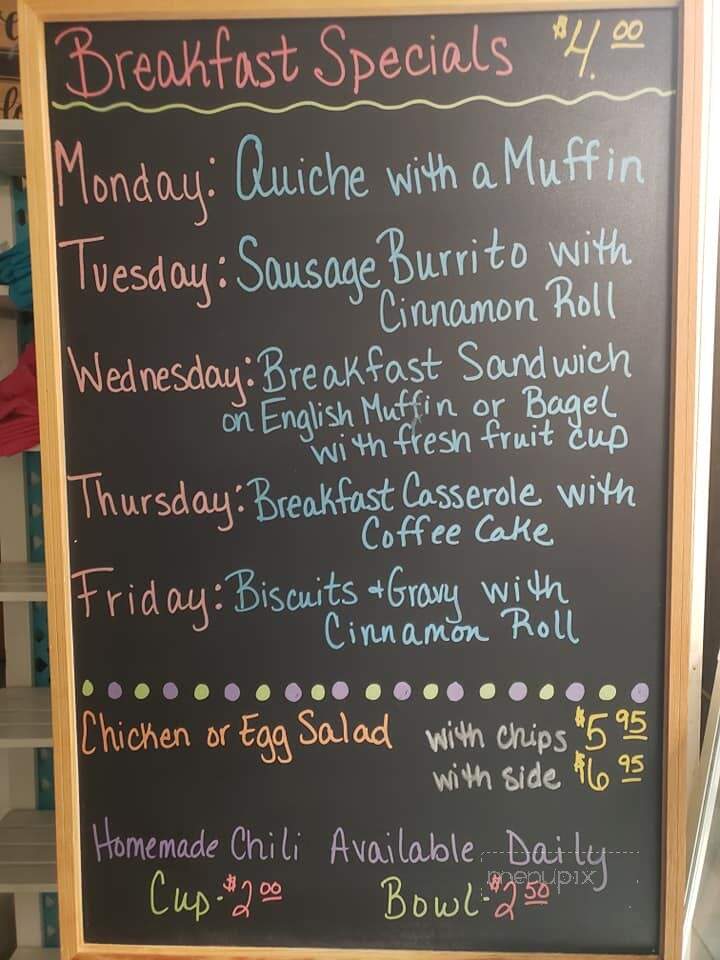 Breakfast Specials $4.00
Monday: Quiche with a Muffin
Tuesday: Sausage Burrito with
Cinnamon Roll
Wednesday: Breakfast Sandwich
on English Muffin or Bagel
with fresh fruit cup
Thursday: Breakfast Casserole with
Coffee Cake
Friday: Biscuits + Gravy with
Cinnamon Roll
Chicken or Egg Salad with chips $5.95
with side $6.95
Homemade Chili Available Daily
menupix
Cup - $2.00 Bowl - $2.50